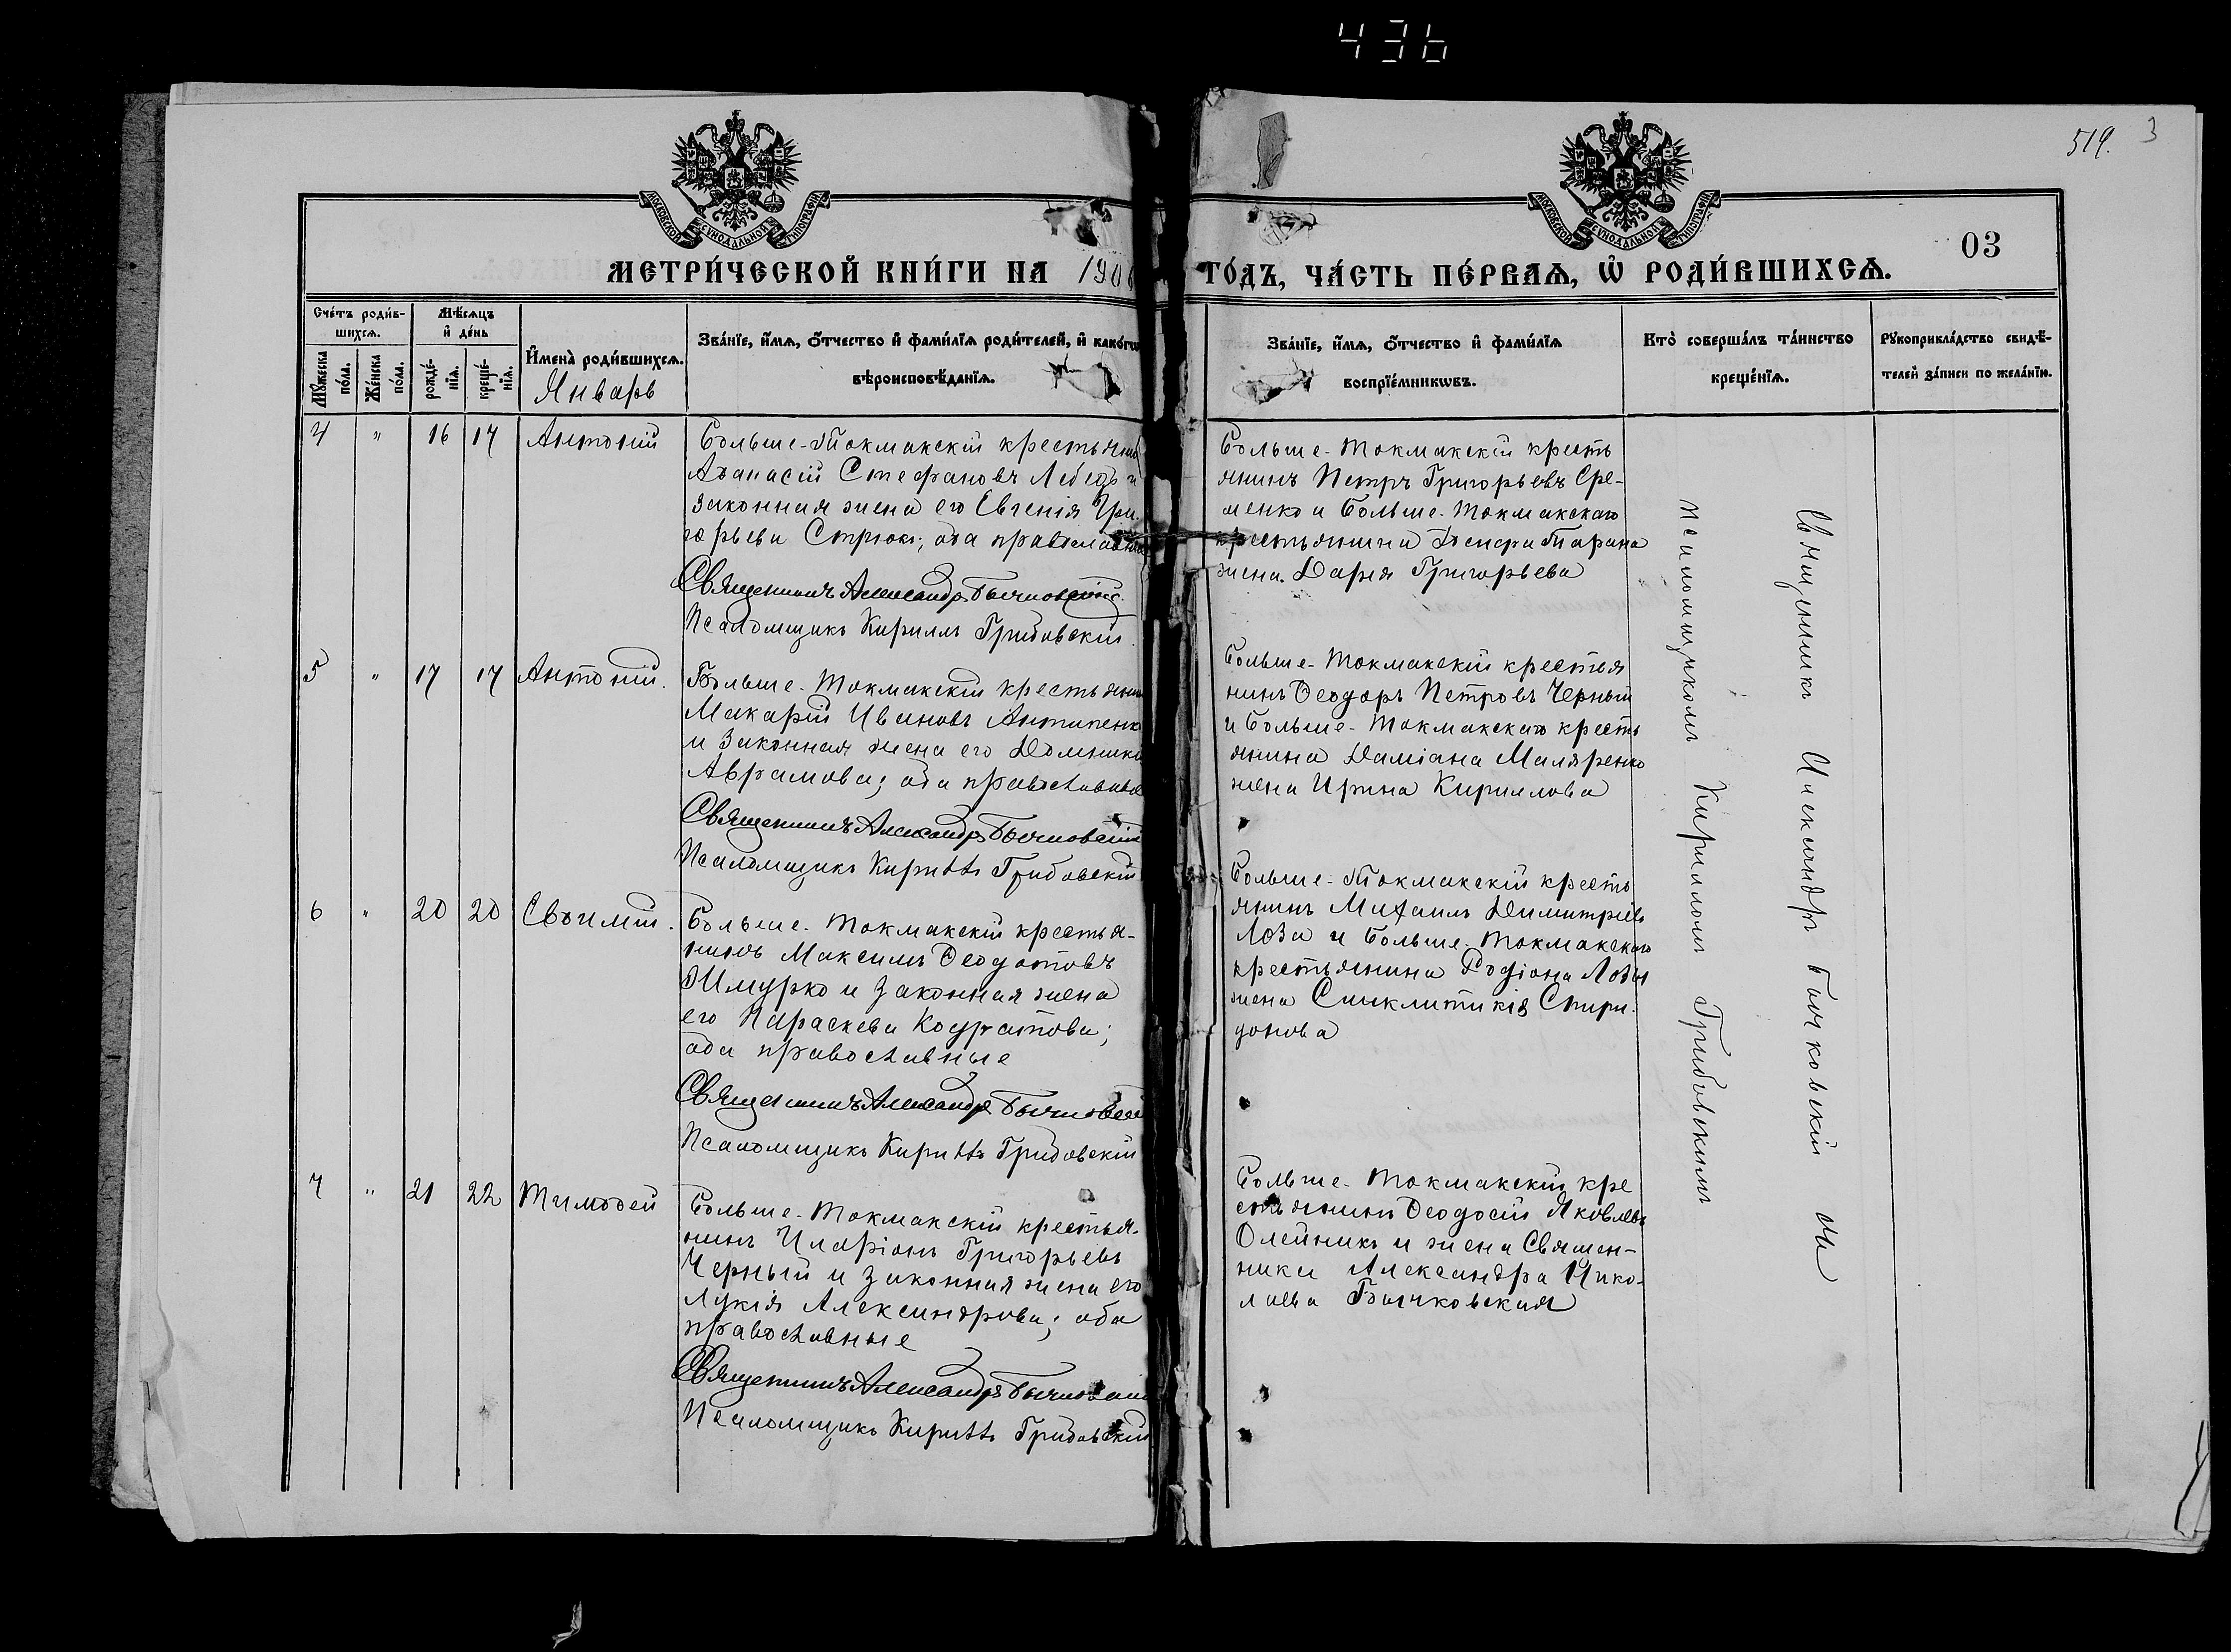 436
519. 3
03
МОСКОВСКОЙ СѴНОДАЛЬНОЙ ТИПОГРАФІИ
МОСКОВСКОЙ СѴНОДАЛЬНОЙ ТИПОГРАФІИ
МЕТРИ́ЧЕСКОЙ КНИ́ГИ НА 190
ГО́ДЪ, ЧА́СТЬ ПЕ́РВАѦ, Ѡ҆ РОДИ́ВШИХСѦ.
Сче́тъ роди́в-
шихсѧ.
Мꙋ́жеска по́ла.
Же́нска по́ла.
Мѣ́сѧцъ
и҆ де́нь
рожде́-
нїѧ.
креще́-
нїѧ.
И҆мена̀ роди́вшихсѧ.
Январь
Зва́нїе, и҆́мѧ, ѻ҆́тчество и҆ фами́лїѧ роди́телей, и҆ како́гѡ
вѣроисповѣ́данїѧ.
Зва́нїе, и҆́мѧ, ѻ҆́тчество и҆ фами́лїѧ
воспрїе́мникѡвъ.
Кто̀ соверша́лъ та́инство
креще́нїѧ.
Рꙋкоприкла́дство свидѣ́-
телей за́писи по жела́нїю.
4 " 16 17 Антоній
Больше-Токмакскій крестьянин
Аѳанасій Стефановъ Лебедь и
законная жена его Евгенія Гри-
горьева Стрюк; оба православн
Священникъ Александръ Бычковскій
Псаломщикъ Кириллъ Грибовскій.
Больше-Токмакскій кресть
янинъ Петръ Григорьевъ Ере-
менко и Больше-Токмакскаго
крестьянина Тарана
жена Дарія Григорьева
5 " 17 17 Антоній.
Больше-Токмакскій крестьянин
Макарій Ивановъ Антипенко
и законная жена его Домника
Аврамова; оба православные
Священникъ Александръ Бычковскій
Псаломщикъ Кириллъ Грибовскій
Больше-Токмакскій крестья
нинъ Ѳеодоръ Петровъ Черный
и Больше-Токмакскаго кресть
янина Даміана Маляренко
жена Ирина Кириллова
6 " 20 20 Евѳимій.
Больше-Токмакскій крестья-
нинъ Максимъ Ѳеодотовъ
Шмурко и законная жена
его Параскева Кодратова;
оба православные
Священникъ Александръ Бычковскій
Псаломщикъ Кириллъ Грибовскій
Больше-Токмакскій кресть
янинъ Михаилъ Димитріевъ
Лоза и Больше-Токмакскаго
крестьянина Родіона Лозы
жена Синклитикія Спири-
донова
7 " 21 22 Тимоѳей
Больше-Токмакскій крестья-
нинъ Иларіонъ Григорьевъ
Черный и законная жена его
Лукія Александрова; оба
православные
Священникъ Александръ Бычковскій
Псаломщикъ Кириллъ Грибовскій
Больше-Токмакскій кре
стьянинъ Ѳеодосій Яковлевъ
Олейникъ и жена Священ-
ника Александра Нико-
лаева Бычковская
Священникъ Александръ Бычковскій съ
псаломщикомъ Кирилломъ Грибовскимъ